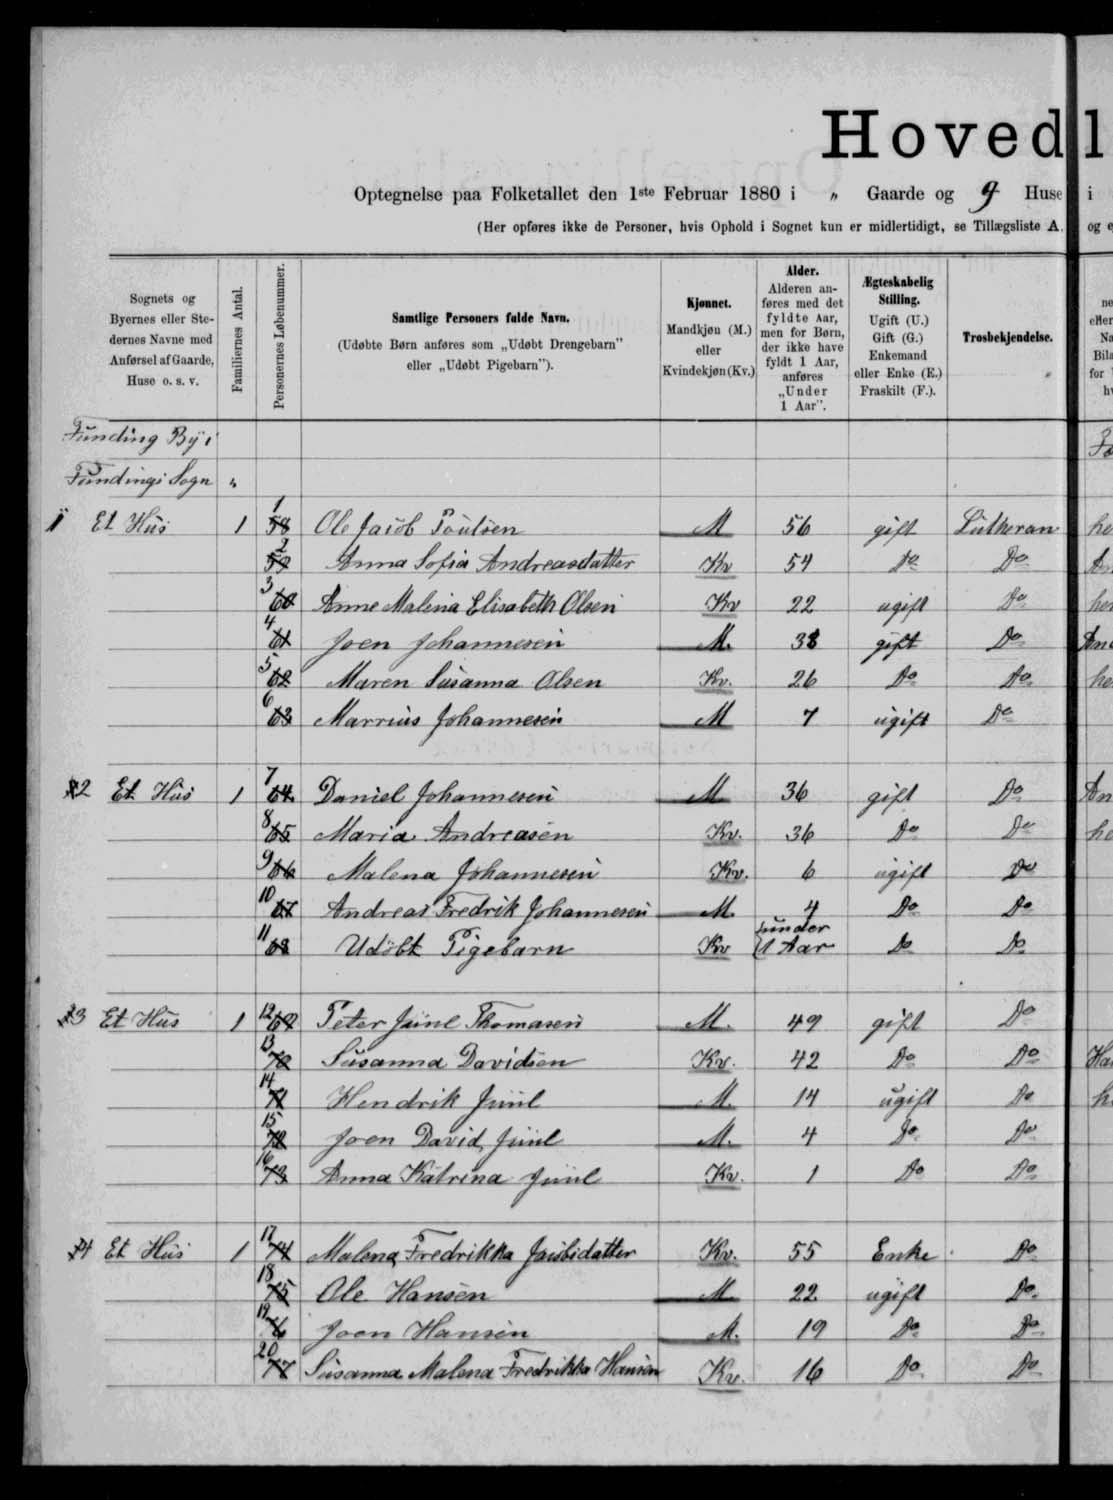 Hovedl
Optegnelse paa Folketallet den 1ste Februar 1880 i „ Gaarde og 9 Huse i
(Her opføres ikke de Personer, hvis Ophold i Sognet kun er midlertidigt, se Tillægsliste A. og e
Sognets og Byernes eller Stedernes Navne med Anførsel af Gaarde, Huse o. s. v.
Familiernes Antal.
Personernes Løbenummer.
Samtlige Personers fulde Navn.
(Udøbte Børn anføres som „Udøbt Drengebarn" eller „Udøbt Pigebarn").
Kjønnet.
Mandkjøn (M.) eller Kvindekjøn (Kv.)
Alder.
Alderen anføres med det fyldte Aar, men for Børn, der ikke have fyldt 1 Aar, anføres „Under 1 Aar".
Ægteskabelig Stilling.
Ugift (U.) Gift (G.) Enkemand eller Enke (E.) Fraskilt (F.).
Trosbekjendelse.
Funding By i
Fundings Sogn „
1 Et Hus 1 1 58 Ole Jacob Poulsen M 56 gift Lutheran
2 59 Anna Sofia Andreasdatter Kv 54 Do Do
3 60 Anne Malena Elisabeth Olsen Kv 22 ugift Do
4 61 Joen Johannesen M. 38 gift Do
5 62 Maren Susanna Olsen Kv. 26 Do Do
6 63 Marrius Johannesen M 7 ugift Do
2 Et Hus 1 7 64 Daniel Johannesen M 36 gift Do
8 65 Maria Andreasen Kv. 36 Do Do
9 66 Malena Johannesen Kv. 6 ugift Do
10 67 Andreas Fredrik Johannesen M. 4 Do Do
11 68 Udöbt Pigebarn Kv under 1 Aar Do Do
3 Et Hus 1 12 69 Peter Juul Thomasen M. 49 gift Do
13 70 Susanna Davidsen Kv. 42 Do Do
14 71 Hendrik Juul M. 14 ugift Do
15 72 Joen David Juul M. 4 Do Do
16 73 Anna Katrina Juul Kv. 1 Do Do
4 Et Hus 1 17 74 Malena Fredrikka Jacobsdatter Kv. 55 Enke Do
18 75 Ole Hansen M 22 ugift Do
19 76 Joen Hansen M. 19 Do Do
20 77 Susanna Malena Fredrikka Hansen Kv. 16 Do Do